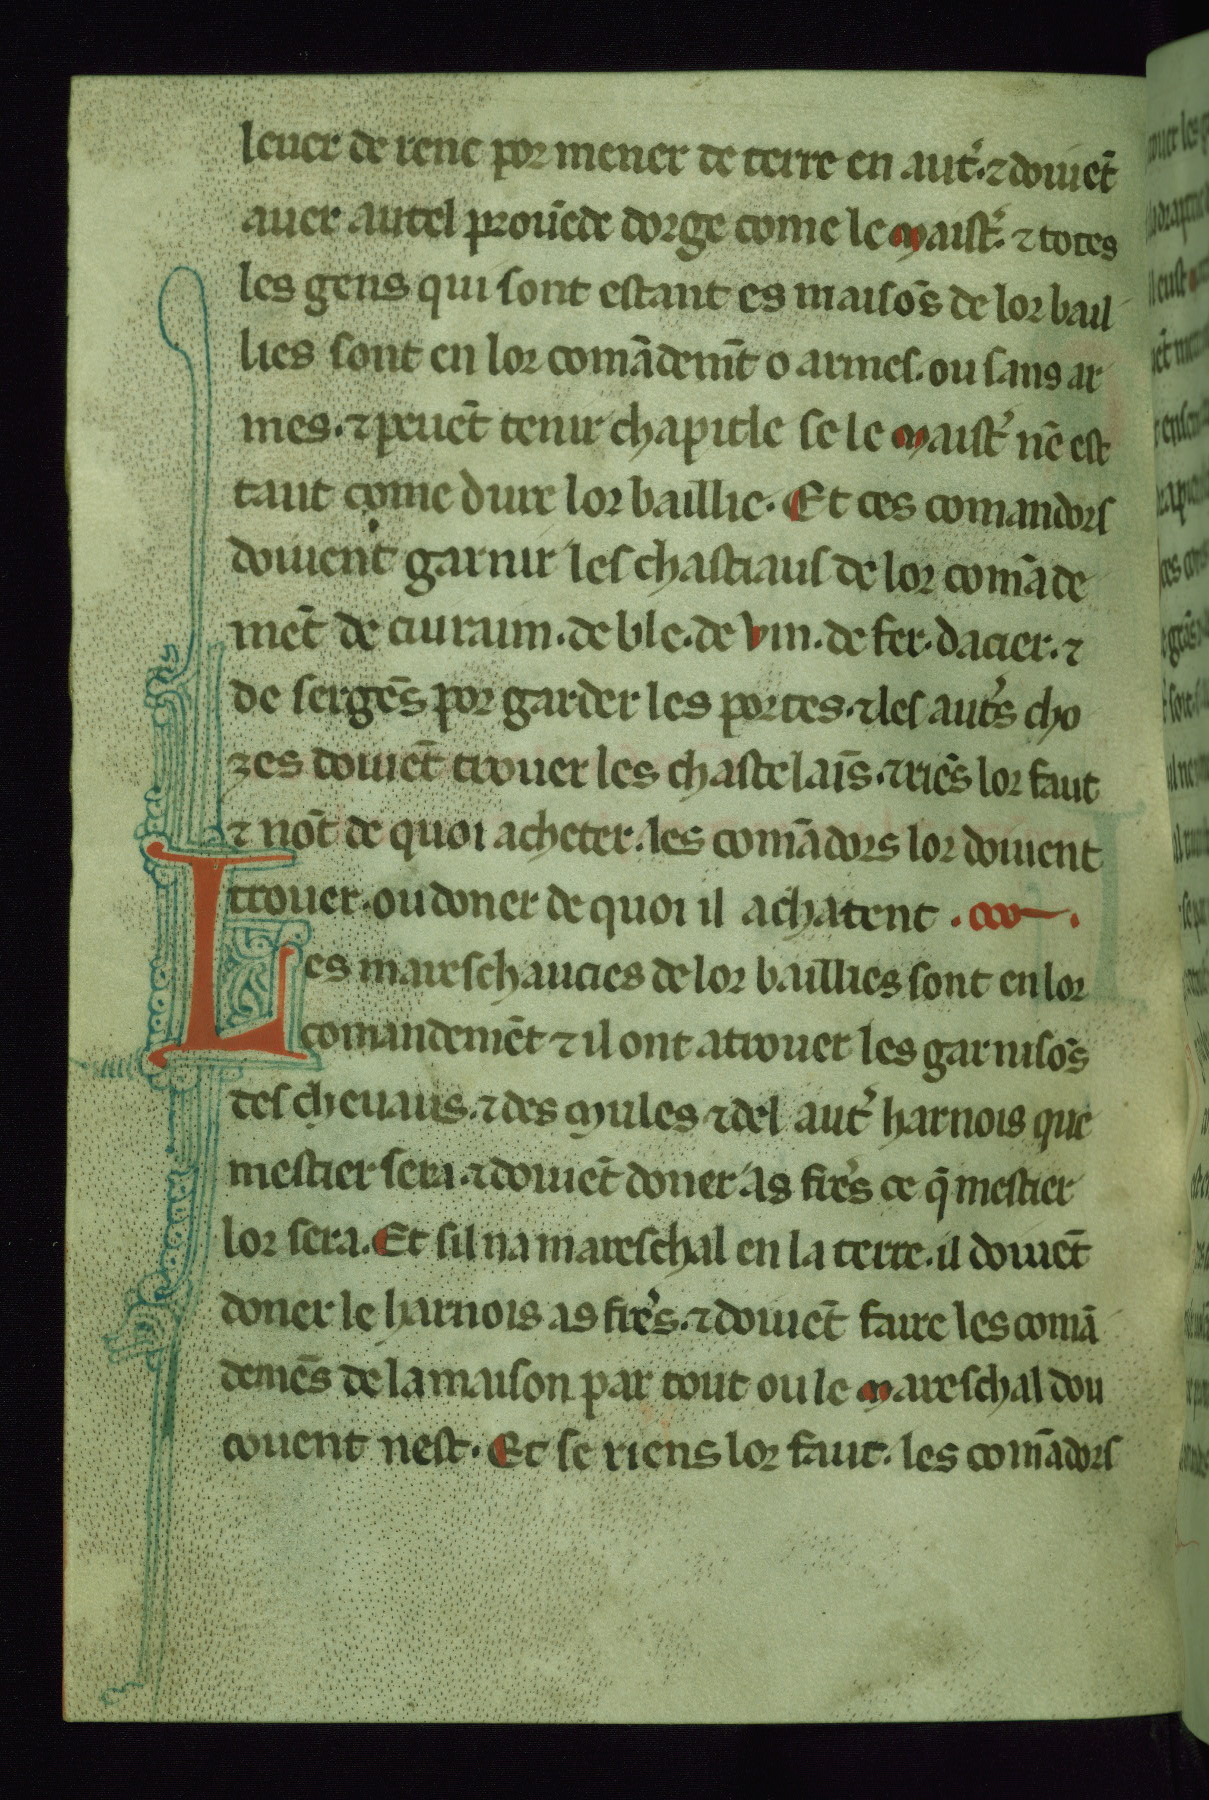 leuer de rene por mener de terre en aut̾. ⁊ doiuẽt
auer autel prouẽde dorge come le Maist̾. ⁊ totes
les gens qui sont estant es maisõs de lor bail
lies sont en lor comãdemt̃ o armes. ou sans ar
mes. ⁊ peuẽt tenir chapitle se le Maist̾ nẽ est
tant come dure lor baillie. Et ces comandors
doiuent garnir les chastiaus de lor comãde
mẽt de cuiraim. de ble. de vin. de fer. dacier. ⁊
de sergẽs por garder les portes. ⁊ les aut̾s cho
zes doiuẽt trouer les chastelaĩs. ⁊ riẽs lor faut
⁊ nõt de quoi acheter. les comãdors lor doiuent
trouer. ou doner de quoi il achatent.
Les mareschaucies de lor baillies sont en lor
comandemẽt ⁊ il ont atrouer les garnisõs
des cheuaus. ⁊ des Mules ⁊ del aut̾ harnois que
mestier sera. ⁊ doiuẽt doner as frẽs ce q̃ mestier
lor sera. Et sil na mareschal en la terre. il doiuẽt
doner le harnois as frẽs. ⁊ doiuẽt faire les comã
demẽs de la maison par tout ou le Mareschal dou
couent nest. Et se riens lor faut. les comãdors